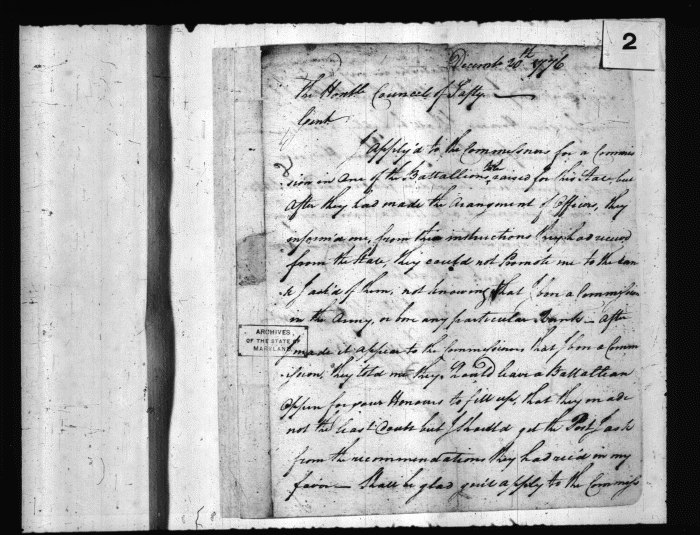 2
December 20th 1776
The Honble Council of Safty.
Gent.
I Apply'd to the Commissioners for a Commis
sion in one of the Battallions to be raised for this State, but
After they had made the Arangement of Officers, they
inform'd me, from the instructions they had receved
from the State, they could not Promote me to the ran
k I ask'd of them, not knowing that I bore a Commission
in the Army, or bore any particular Rank — After
I made it appear to the Commissioners that I bore a Comm
ission, they told me they would leave a Battallian
Oppen for your Honours to fill up, that they made
not the least Doubt but I should get the Post I ask
from the recommendations they had rec'd in my
favor — Shall be glad you'l apply to the Commiss
ARCHIVES
OF THE STATE OF
MARYLAND